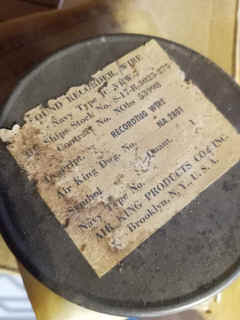 SOUND RECORDER, WIRE
Navy Type
Ships Stock No. S-17-R-
Contract No. NObs
Descript. RECORDING WIRE
Air King Dwg. No. NA 2891
Symbol Quant. 1
Navy Type No.
AIR KING PRODUCTS CO., INC.
Brooklyn, N.Y., U.S.A.